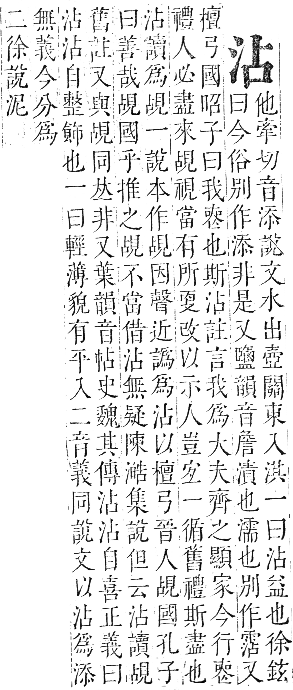 沾
他牽切音添說文水出壺關東入淇一曰沾益也徐鉉
曰今俗別作添非是又鹽韻音詹漬也濡也別作霑又
檀弓國昭子曰我喪也斯沾註言我爲大夫齊之顯家今行喪
禮人必盡來覘視當有所更改以示人豈宜一循舊禮斯盡也
沾讀爲覘一說本作覘因聲近譌爲沾以檀弓晉人覘國孔子
曰善哉覘國乎推之覘不當借沾無疑陳澔集說但云沾讀覘
舊註又與覘同𠀤非又葉韻音帖史魏其傳沾沾自喜正義曰
沾沾自整飾也一曰輕薄貌有平入二音義同說文以沾爲添
無義今分爲
二徐說泥